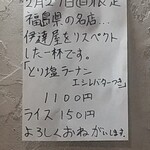 2月27日(日)限定
福島県の名店...
伊達屋をリスペクト
した一杯です。
「とり塩ラーメン
エシレバターつき」
1100円
ライス150円
よろしくおねがいします。